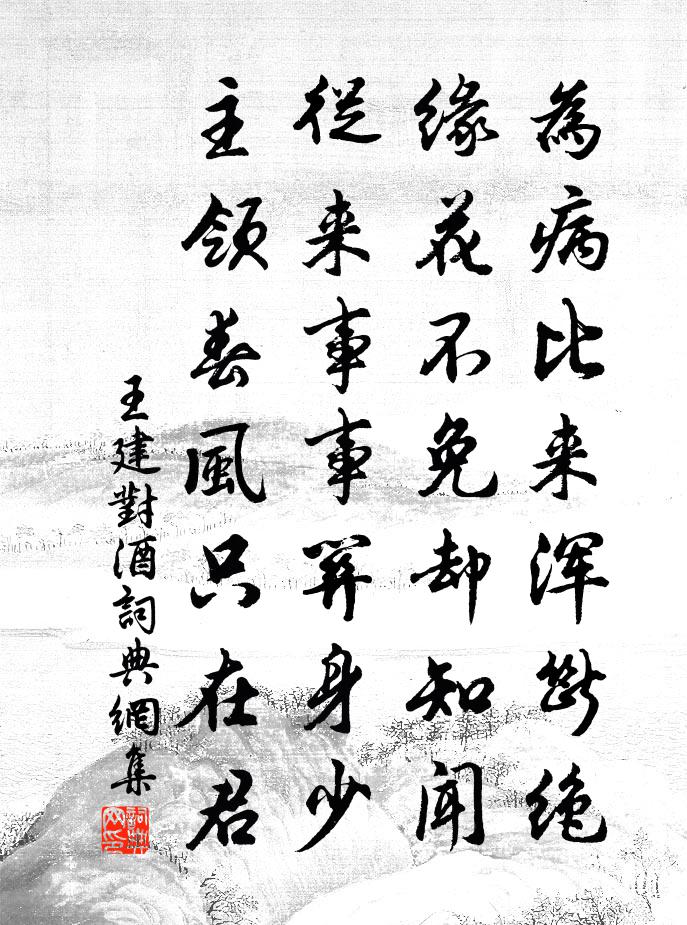 為病比来渾斷绝
緣花不免却知聞
從来事事關身少
主領春風只在君
王建對酒詞典網集
詞典網印